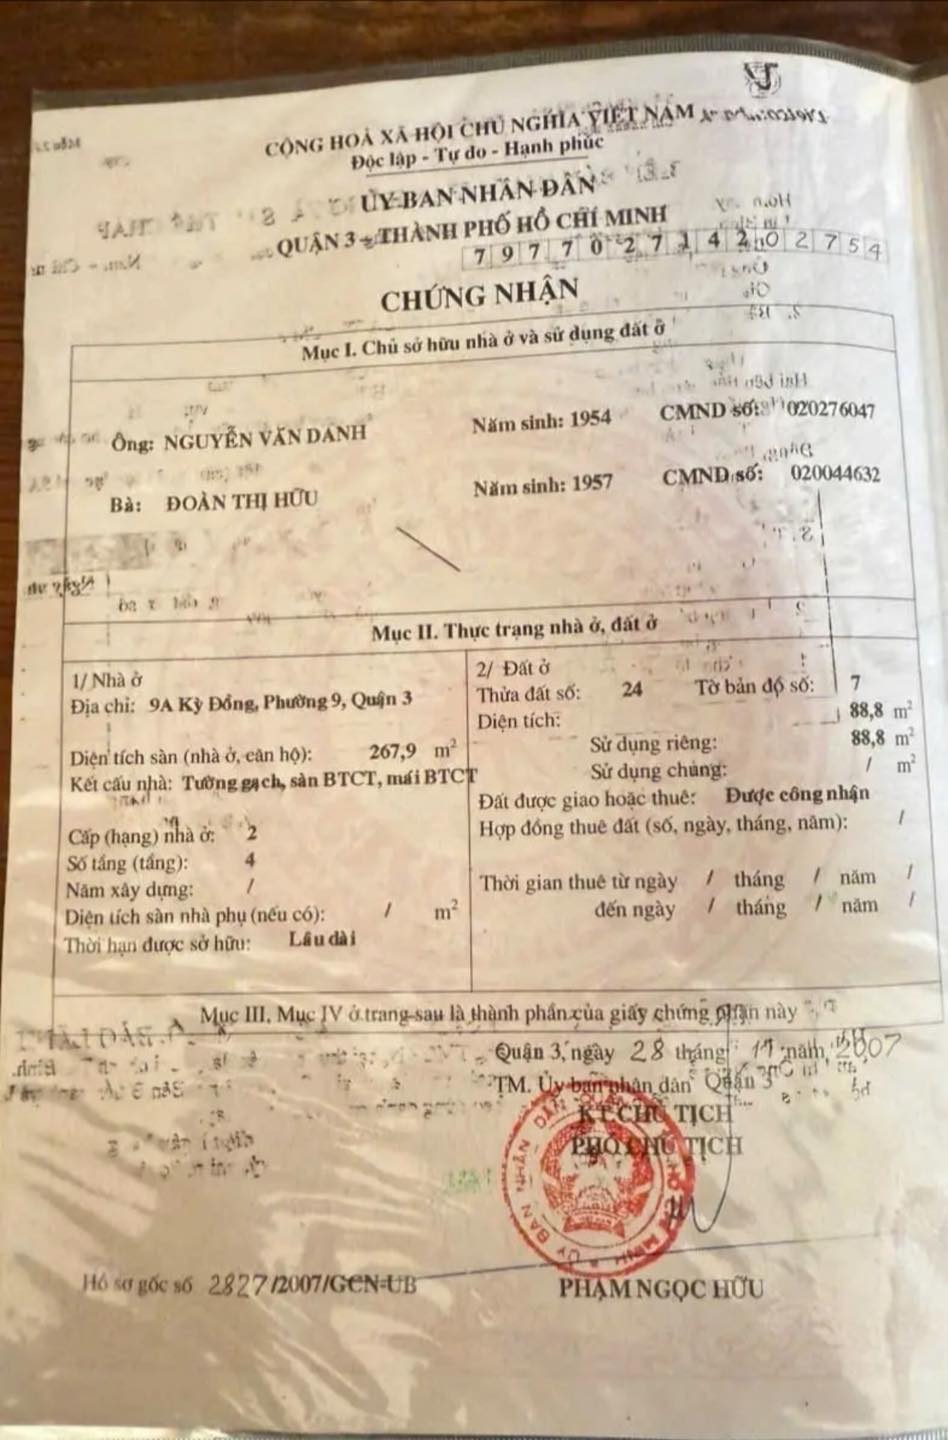 CỘNG HOÀ XÃ HỘI CHỦ NGHĨA VIỆT NAM
Độc lập - Tự do - Hạnh phúc
ỦY BAN NHÂN DÂN
QUẬN 3 - THÀNH PHỐ HỒ CHÍ MINH
797702714202754
CHỨNG NHẬN
Mục I. Chủ sở hữu nhà ở và sử dụng đất ở
Ông: NGUYỄN VĂN DANH Năm sinh: 1954 CMND số: 020276047
Bà: ĐOÀN THỊ HỮU Năm sinh: 1957 CMND số: 020044632
Mục II. Thực trạng nhà ở, đất ở
1/ Nhà ở
Địa chỉ: 9A Kỳ Đồng, Phường 9, Quận 3
Diện tích sàn (nhà ở, căn hộ): 267,9 m²
Kết cấu nhà: Tường gạch, sàn BTCT, mái BTCT
Cấp (hạng) nhà ở: 2
Số tầng (tầng): 4
Năm xây dựng: /
Diện tích sàn nhà phụ (nếu có): / m²
Thời hạn được sở hữu: Lâu dài
2/ Đất ở
Thửa đất số: 24 Tờ bản đồ số: 7
Diện tích: 88,8 m²
Sử dụng riêng: 88,8 m²
Sử dụng chung: / m²
Đất được giao hoặc thuê: Được công nhận
Hợp đồng thuê đất (số, ngày, tháng, năm): /
Thời gian thuê từ ngày / tháng / năm /
đến ngày / tháng / năm /
Mục III, Mục IV ở trang sau là thành phần của giấy chứng nhận này
Quận 3, ngày 28 tháng 11 năm 2007
TM. Ủy ban nhân dân Quận 3
KT CHỦ TỊCH
PHÓ CHỦ TỊCH
Hồ sơ gốc số 2827/2007/GCN-UB
PHẠM NGỌC HỮU